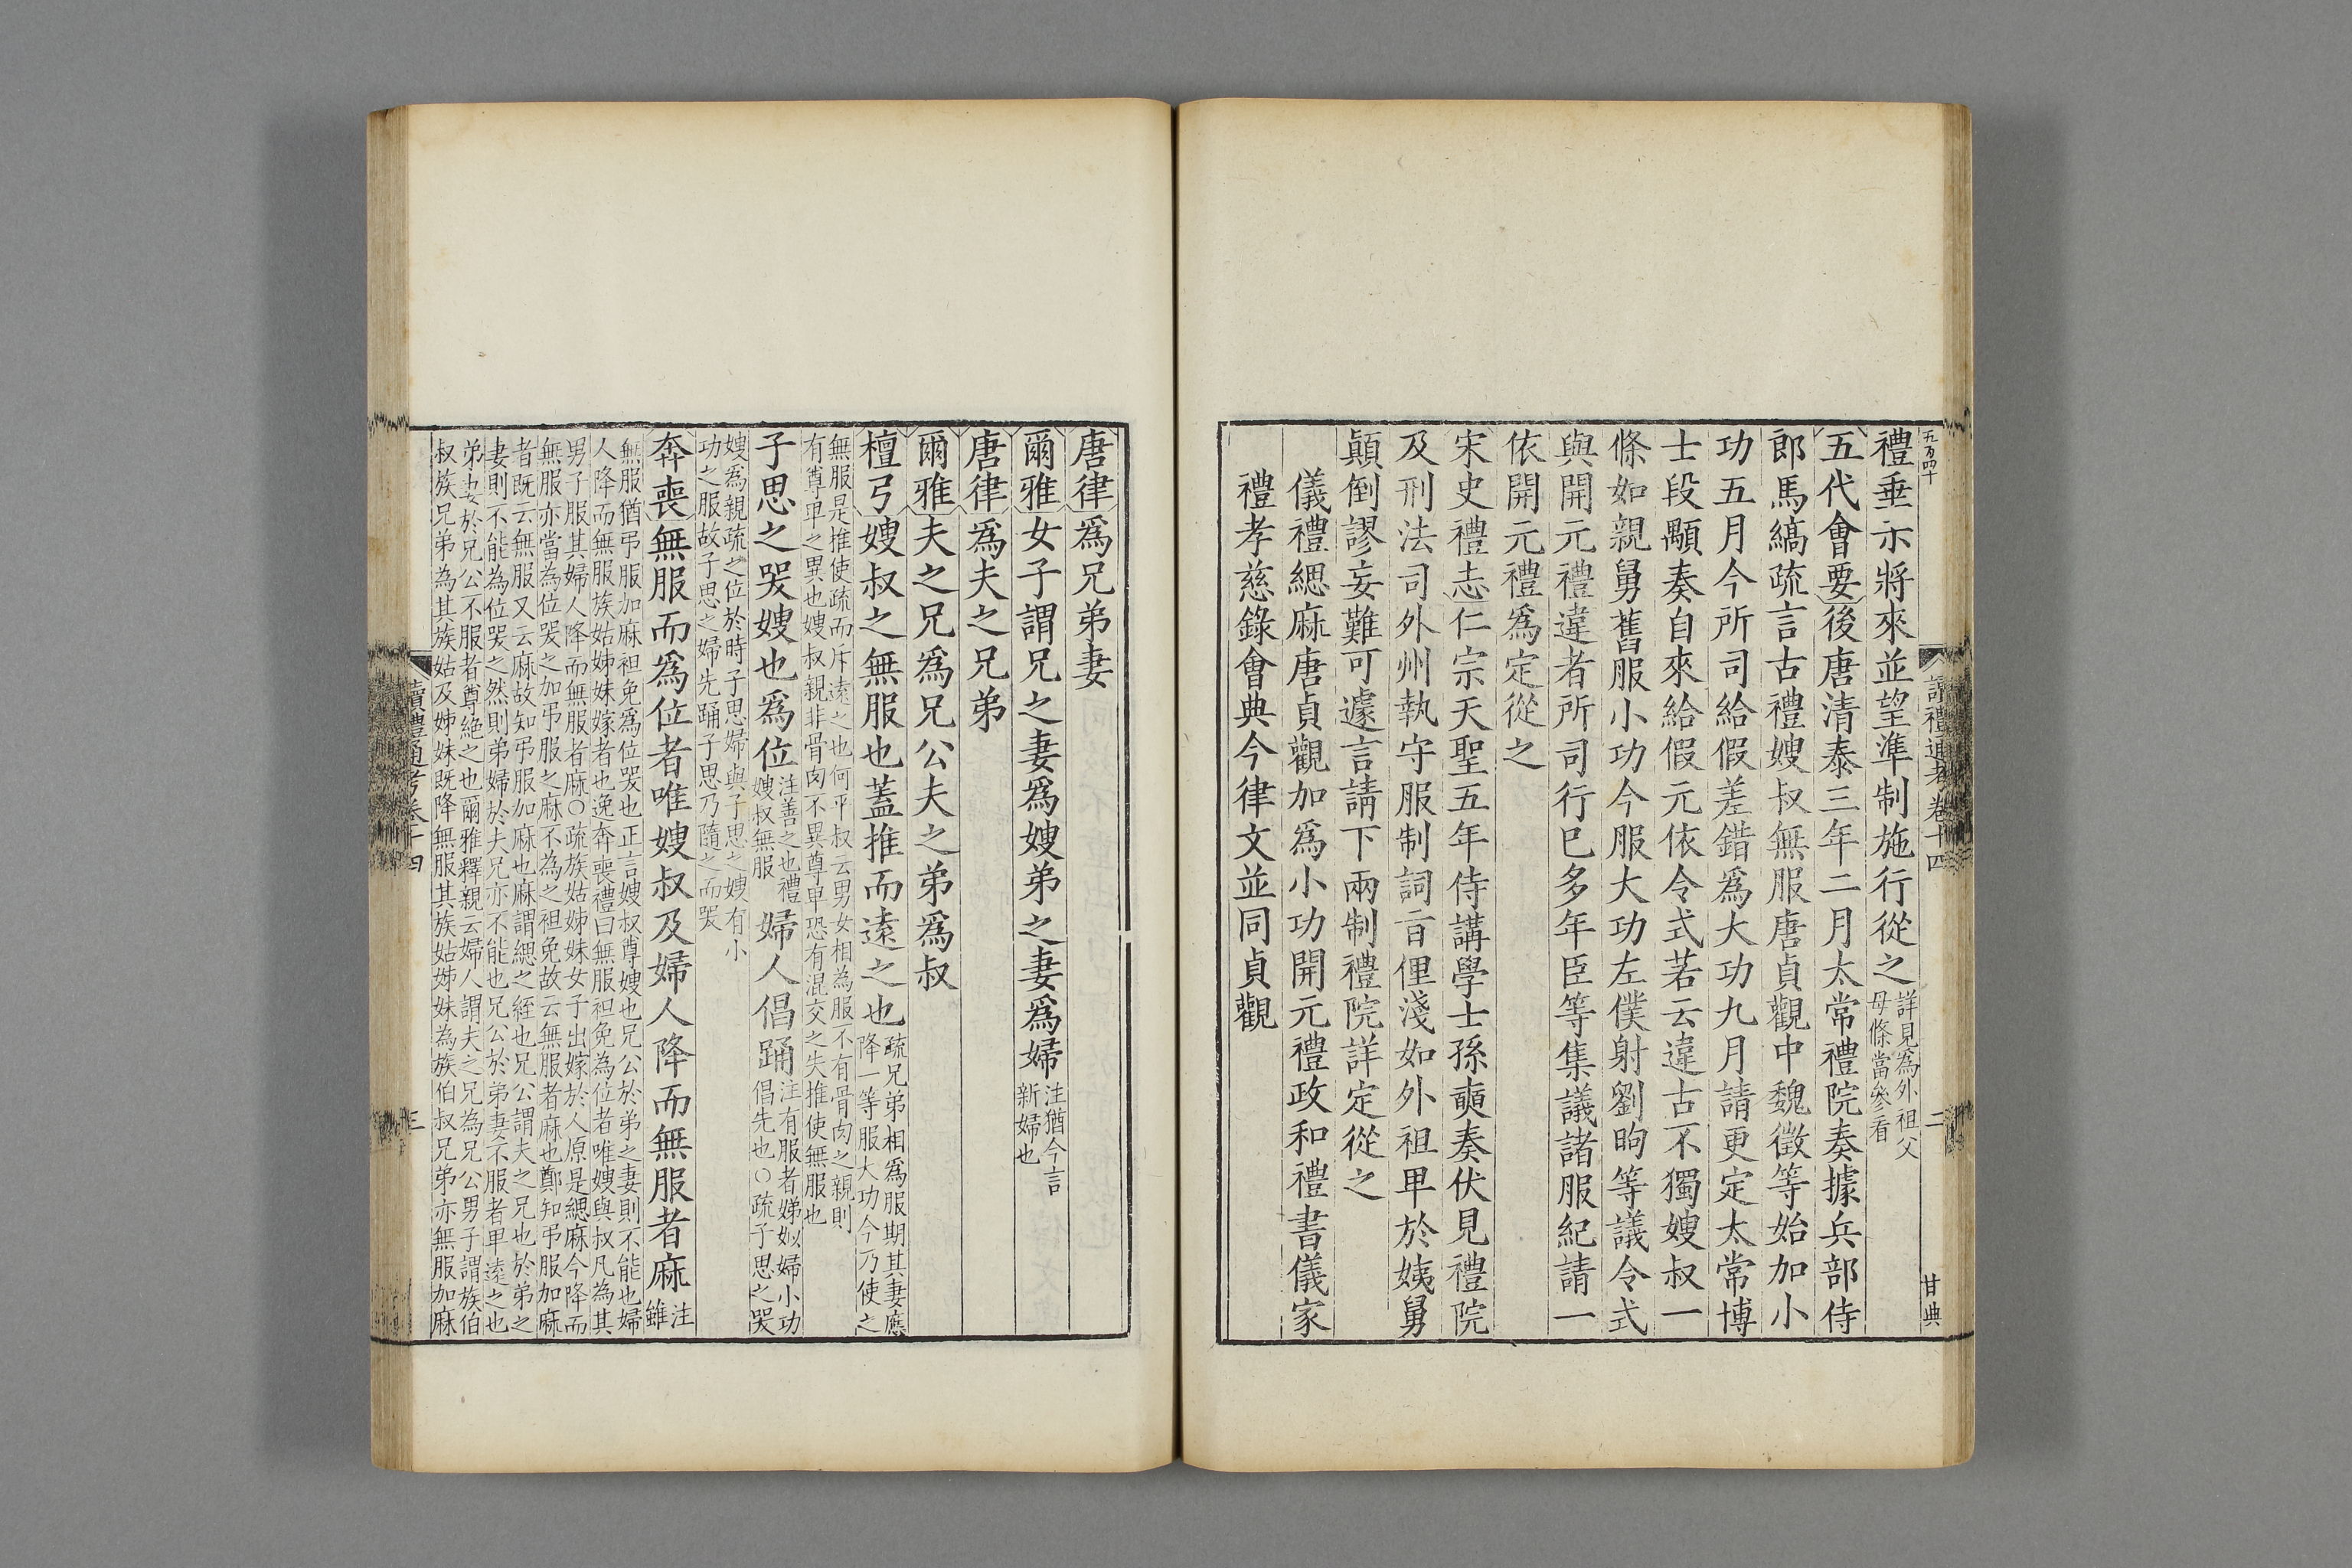 五百四十
讀禮通考卷十四
二
甘典
禮垂示將來並望準制施行從之詳見爲外祖父
母條當參看
五代會要後唐清泰三年二月太常禮院奏據兵部侍
郎馬縞疏言古禮嫂叔無服唐貞觀中魏徵等始加小
功五月今所司給假差錯爲大功九月請更定太常博
士段顒奏自來給假元依令式若云違古不獨嫂叔一
條如親舅舊服小功今服大功左僕射劉昫等議令式
與開元禮違者所司行已多年臣等集議諸服紀請一
依開元禮爲定從之
宋史禮志仁宗天聖五年侍講學士孫奭奏伏見禮院
及刑法司外州執守服制詞旨俚淺如外祖卑於姨舅
顛倒謬妄難可遽言請下兩制禮院詳定從之
儀禮緦麻唐貞觀加爲小功開元禮政和禮書儀家
禮孝慈錄會典今律文並同貞觀
唐律爲兄弟妻
爾雅女子謂兄之妻爲嫂弟之妻爲婦注猶今言
新婦也
唐律爲夫之兄弟
爾雅夫之兄爲兄公夫之弟爲叔
檀弓嫂叔之無服也蓋推而遠之也疏兄弟相爲服期其妻應
降一等服大功今乃使之
無服是推使疏而斥遠之也何平叔云男女相為服不有骨肉之親則
有尊卑之異也嫂叔親非骨肉不異尊卑恐有混交之失推使無服也
子思之哭嫂也爲位注善之也禮
嫂叔無服
婦人倡踊注有服者娣姒婦小功
倡先也○疏子思之哭
嫂爲親疏之位於時子思婦與子思之嫂有小
功之服故子思之婦先踊子思乃隨之而哭
奔喪無服而爲位者唯嫂叔及婦人降而無服者麻注
雖
無服猶弔服加麻袒免爲位哭也正言嫂叔尊嫂也兄公於弟之妻則不能也婦
人降而無服族姑姊妹嫁者也逸奔喪禮曰無服袒免為位者唯嫂與叔凡為其
男子服其婦人降而無服者麻○疏族姑姊妹女子出嫁於人原是緦麻今降而
無服亦當為位哭之加弔服之麻不為之袒免故云無服者麻也鄭知弔服加麻
者既云無服又云麻故知弔服加麻也麻謂緦之絰也兄公謂夫之兄也於弟之
妻則不能為位哭之然則弟婦於夫兄亦不能也兄公於弟妻不服者卑遠之也
弟妻於兄公不服者尊絶之也爾雅釋親云婦人謂夫之兄為兄公男子謂族伯
叔族兄弟為其族姑及姊妹既降無服其族姑姊妹為族伯叔兄弟亦無服加麻
讀禮通考卷十四
三